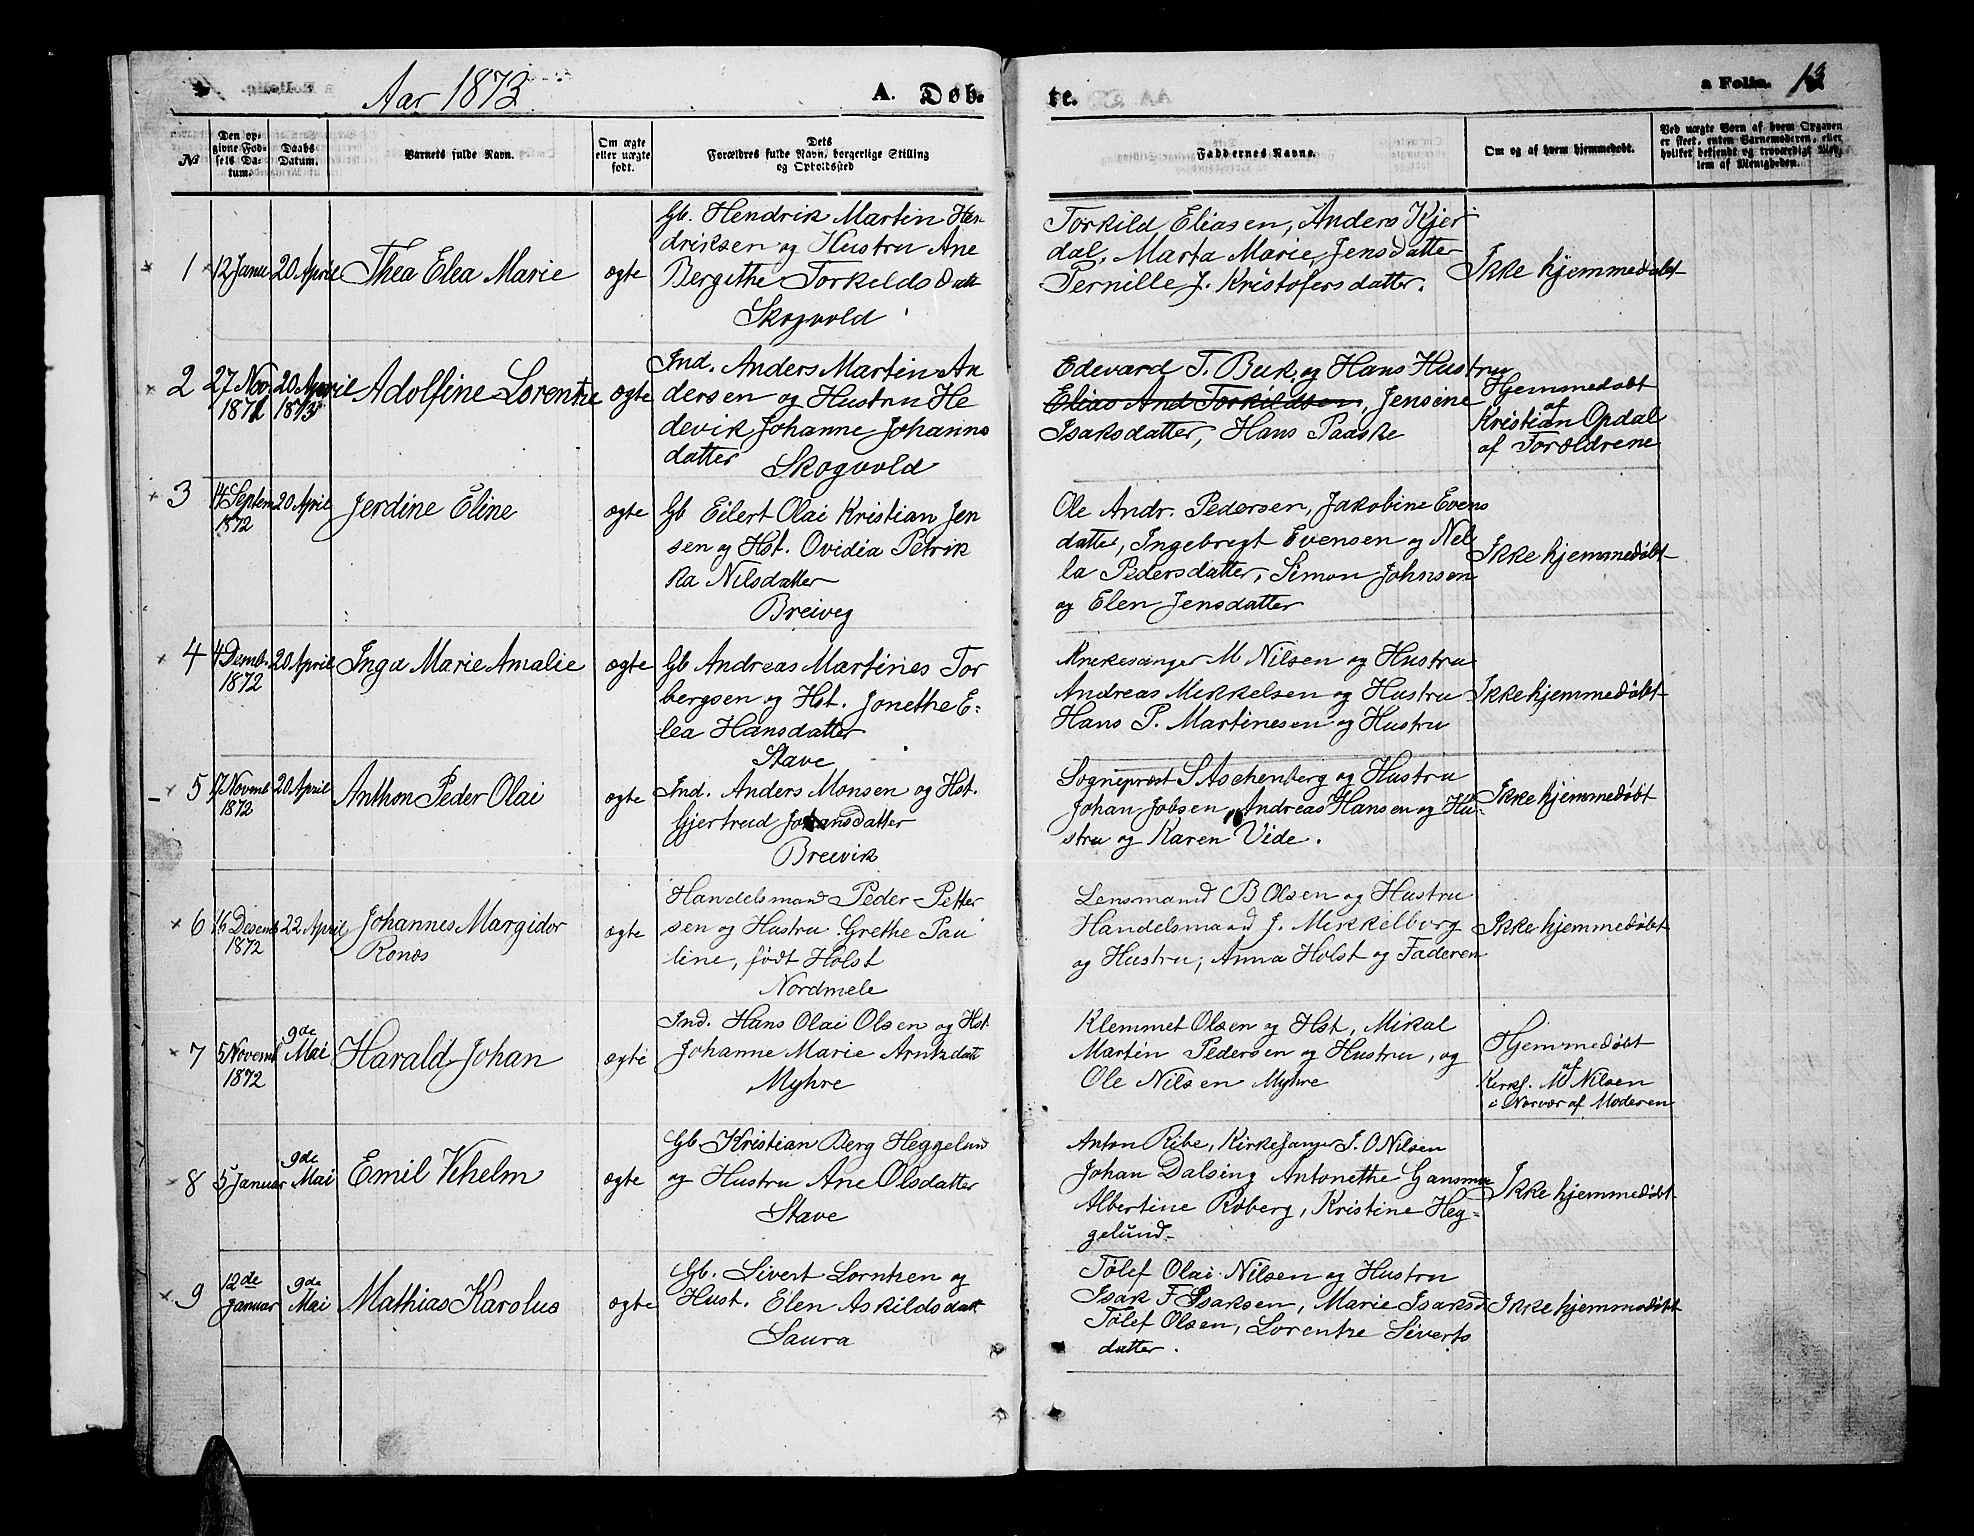 Aar 1873
A. Døb-
te.
a Folio. 13
№
Den op-
givne Fød-
sels Da-
tum.
Daabs
Datum.
Barnets fulde Navn.
Om ægte
eller uægte
født.
Dets
Forældres fulde Navn, borgerlige Stilling
og Opholdssted
Faddernes Navne.
Om og af hvem hjemmedøbt.
Ved uægte Børn af hvem Opgaven
er skeet, enten Barnemoderen, eller
hvilket bekjendt og troværdigt Med-
lem af Menigheden.
1
12 Janu
20 April
Thea Elea Marie
ægte
Gb. Hendrik Martin Hen-
driksen og Hustru Ane
Bergithe Torkilds Datt
Skogvold
Torkild Eliasen, Anders Kjer
dal, Marta Marie Jensdatter
Pernille J. Kristofersdatter.
Ikke hjemmedøbt
2
27 Nov
1871
20 April
1873
Adolfine Lorentze
ægte
Ind. Anders Martin An
dersen og Hustru He
devik Johanne Johanns
datter Skogvold
Edevard T. Buk og Hans Hustru
Elias And Torkildsen, Jensine
Isaksdatter, Hans Paaske
Hjemmedøbt
af
Kristian Opdal
af Forældrene
3
14 Septem
1872
20 April
Jerdine Eline
ægte
Gb Eilert Olai Kristian Jen
sen og Hst. Ovidia Petrik
ka Nilsdatter
Breiveg
Ole Andr. Pedersen, Jakobine Evens
datter, Ingebregt Evensen og Nel
la Pedersdatter, Simon Johnsen
og Elen Jensdatter
Ikke hjemmedøbt
4
4 Desemb.
1872
20 April
Inga Marie Amalie
ægte
Gb Andreas Martines Tor
bergsen og Hst. Jonethe E-
lea Hansdatter
Stave
Kirkesanger M Nilsen og Hustru
Andreas Mikkelsen og Hustru
Hans P. Martinesen og Hustru
Ikke hjemmedøbt
5
17 Novemb
1872
20 April
Anthon Peder Olai
ægte
Ind. Anders Monsen og Hst.
Gjertrud Johansdatter
Breivik
Sogneprest S Aschenberg og Hustru
Johan Jobsen, Andreas Hansen og Hu-
stru og Karen Vide.
Ikke hjemmedøbt
6
16 Desemb
1872
22 April
Johannes Margidor
Ronæs
ægte
Handelsmand Peder Petter
sen og Hustru Grethe Pau
line, født Holst
Nordmele
Lensmand B Olsen og Hustru
Handelsmand J. Mikkelborg
og Hustru, Anna Holst og Faderen
Ikke hjemmedøbt
7
5 Novemb
1872
9de
Mai
Harald Johan
ægte
Ind. Hans Olai Olsen og Hst
Johanne Marie Arntzdatt
Myhre
Klemmet Olsen og Hst, Mikal
Martin Pedersen og Hustru, og
Ole Nilsen Myhre
Hjemmedøbt
af
Kirks. M Nilsen
i Norvær af Moderen
8
5 Januar
9de
Mai
Emil Vihelm
ægte
Gb Kristian Berg Heggelund
og Hustru Ane Olsdatter
Stave
Anton Ribe, Kirkesanger J. O Nilsen
Johan Dalsing Antonethe Gansmoe
Albertine Røberg, Kristine Heg-
gelund-
Ikke hjemmedøbt
9
12de
Januar
9de
Mai
Mathias Karolus
ægte
Gb. Sivert Lorntzen og
Hust. Elen Askildsdatt
Saura
Tølef Olai Nilsen og Hustru
Isak F Isaksen, Marie Isaksd
Tølef Olsen, Lorentze Siverts
datter.
Ikke hjemmedøbt